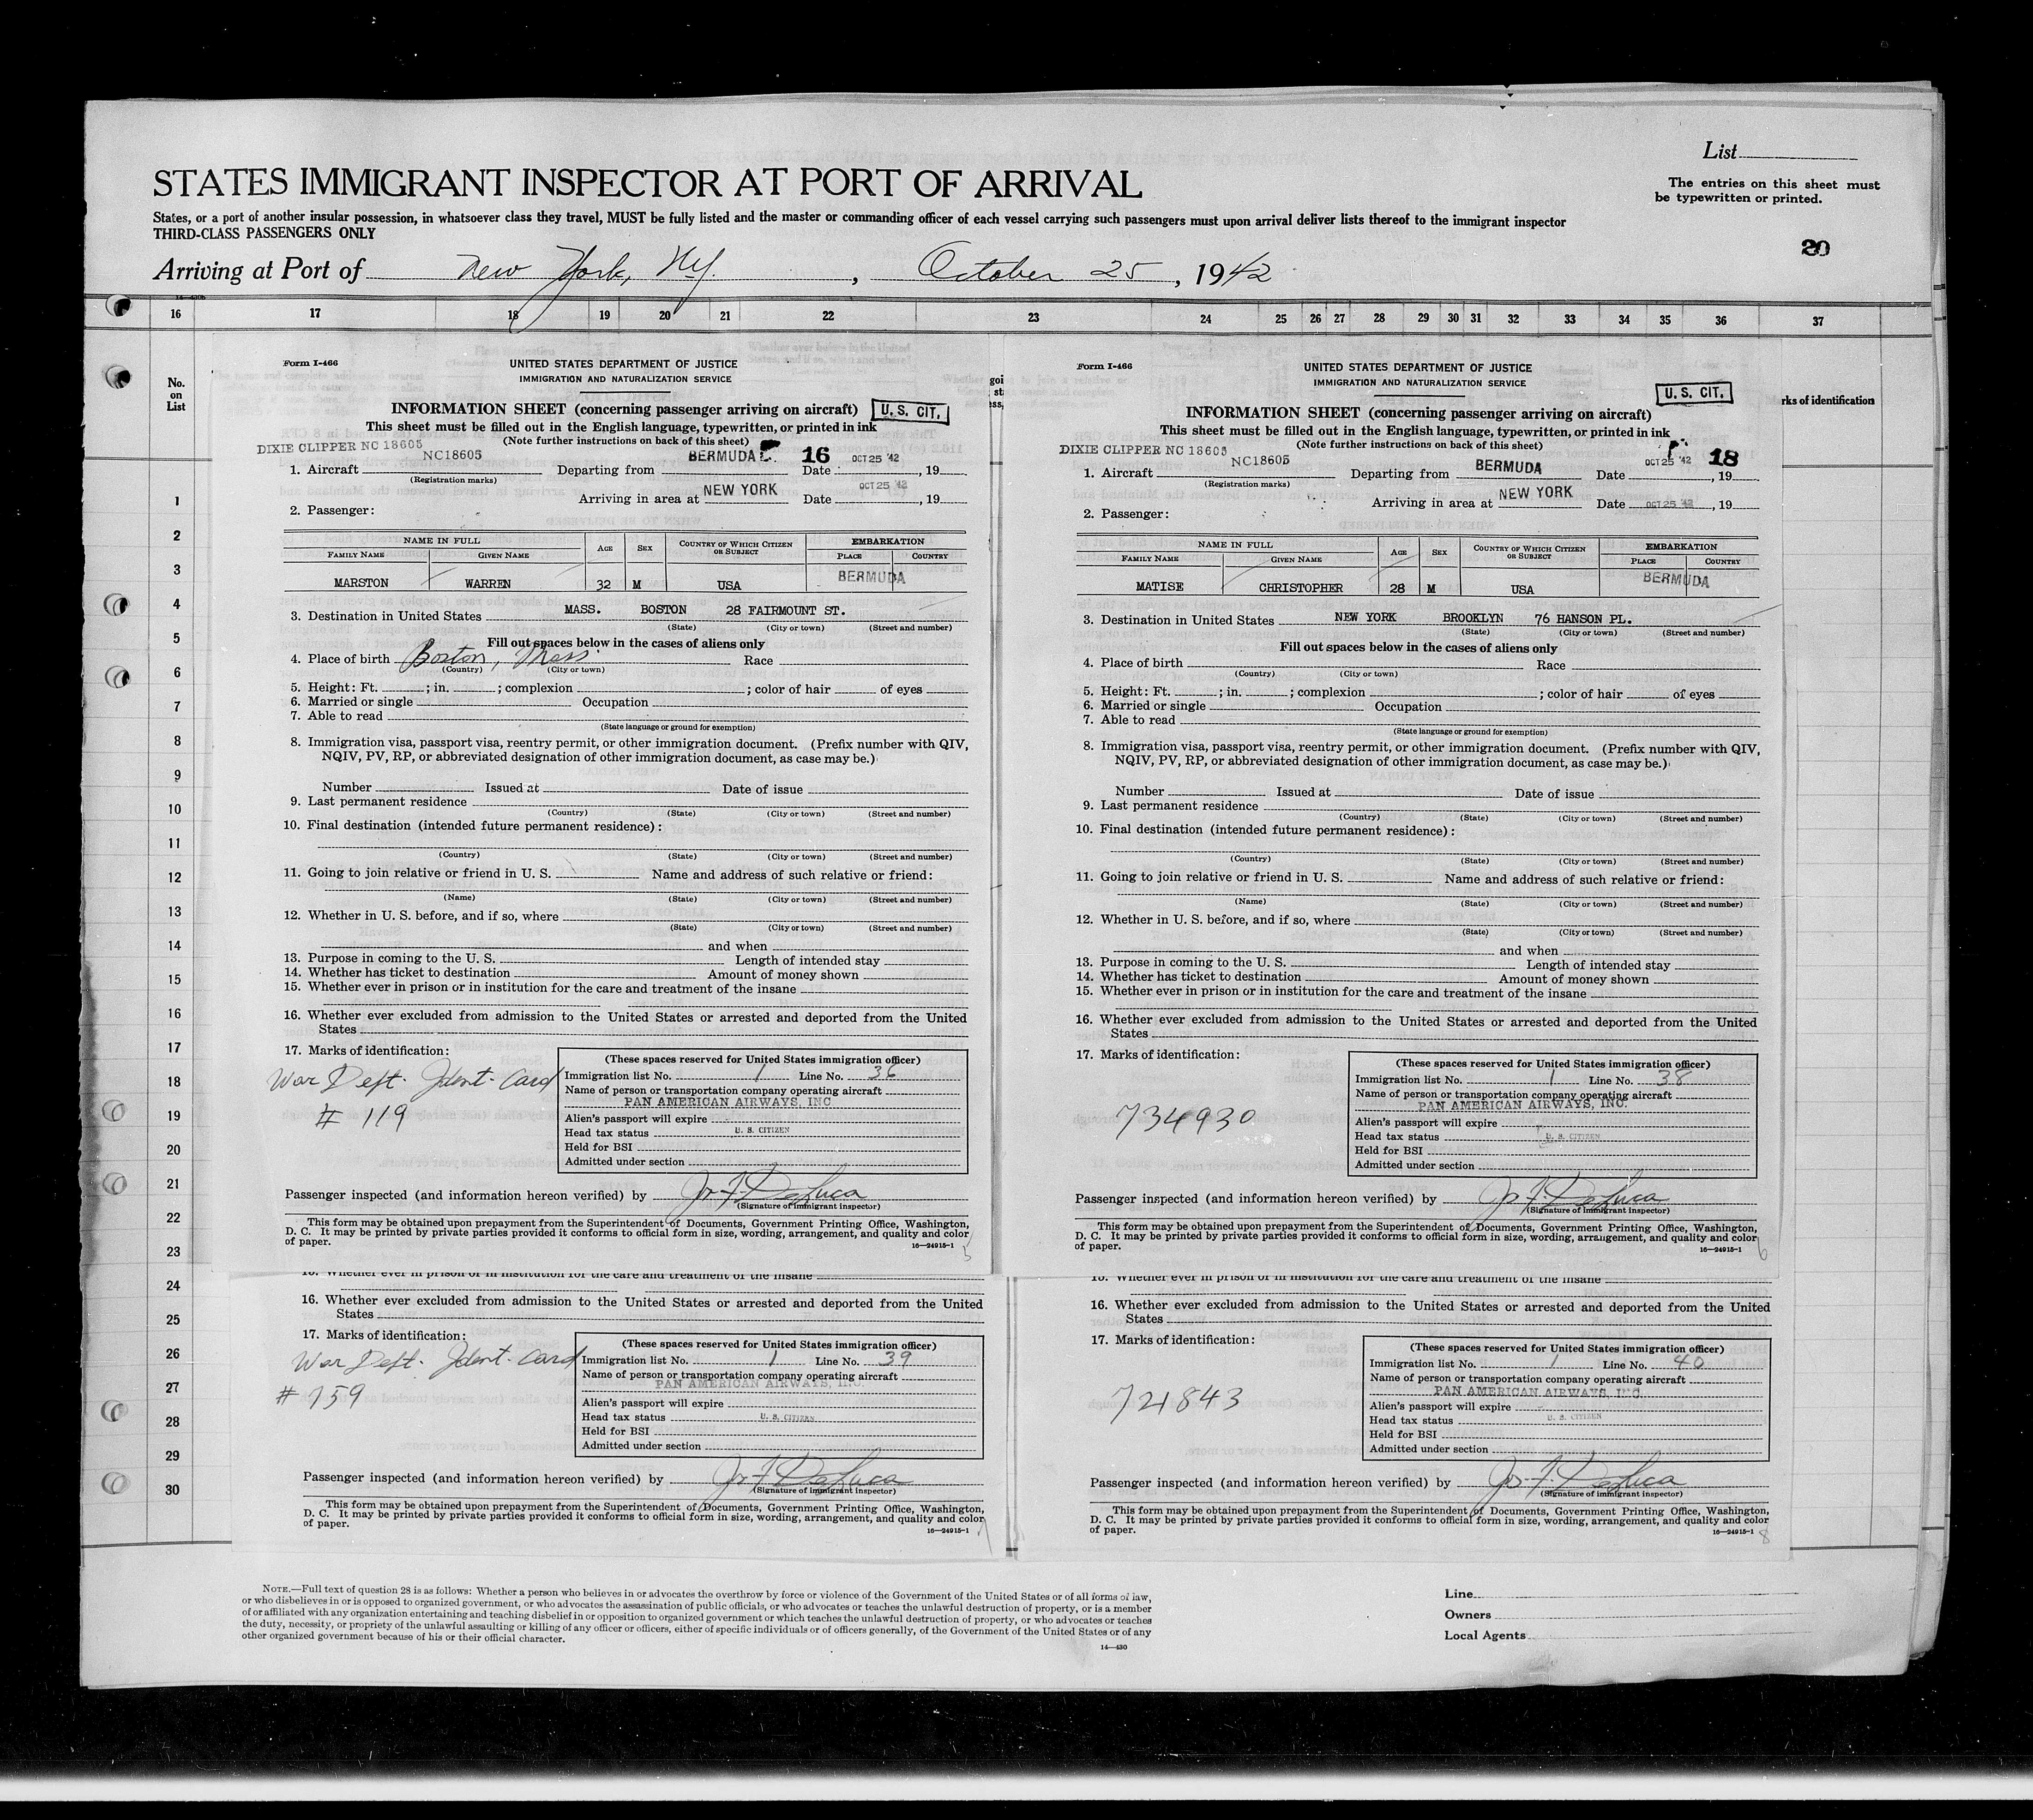 List
STATES IMMIGRANT INSPECTOR AT PORT OF ARRIVAL
The entries on this sheet must
be typewritten or printed.
States, or a port of another insular possession, in whatsoever class they travel, MUST be fully listed and the master or commanding officer of each vessel carrying such passengers must upon arrival deliver lists thereof to the immigrant inspector
THIRD-CLASS PASSENGERS ONLY
20
Arriving at Port of New York, NY. , October 25 , 1942
16 17 18 19 20 21 22 23 24 25 26 27 28 29 30 31 32 33 34 35 36 37
No.
on
List
rks of identification
1
2
3
4
5
6
7
8
9
10
11
12
13
14
15
16
17
18
19
20
21
22
23
24
25
26
27
28
29
30
Form I-466
UNITED STATES DEPARTMENT OF JUSTICE
IMMIGRATION AND NATURALIZATION SERVICE
INFORMATION SHEET (concerning passenger arriving on aircraft) U. S. CIT.
This sheet must be filled out in the English language, typewritten, or printed in ink
(Note further instructions on back of this sheet)
DIXIE CLIPPER NC 18605
NC18605 BERMUDA 16 OCT 25 '42
1. Aircraft Departing from Date , 19
(Registration marks)
Arriving in area at NEW YORK Date OCT 25 '42 , 19
2. Passenger:
NAME IN FULL AGE SEX COUNTRY OF WHICH CITIZEN OR SUBJECT EMBARKATION
FAMILY NAME GIVEN NAME PLACE COUNTRY
MARSTON WARREN 32 M USA BERMUDA
3. Destination in United States MASS. BOSTON 28 FAIRMOUNT ST.
(State) (City or town) (Street and number)
Fill out spaces below in the cases of aliens only
4. Place of birth Boston, Mass Race
(Country) (City or town)
5. Height: Ft. ; in. ; complexion ; color of hair of eyes
6. Married or single Occupation
7. Able to read
(State language or ground for exemption)
8. Immigration visa, passport visa, reentry permit, or other immigration document. (Prefix number with QIV,
NQIV, PV, RP, or abbreviated designation of other immigration document, as case may be.)
Number Issued at Date of issue
9. Last permanent residence
(Country) (State) (City or town) (Street and number)
10. Final destination (intended future permanent residence):
(Country) (State) (City or town) (Street and number)
11. Going to join relative or friend in U. S. Name and address of such relative or friend:
(Name) (State) (City or town) (Street and number)
12. Whether in U. S. before, and if so, where
(State) (City or town) (Street and number)
and when
13. Purpose in coming to the U. S. Length of intended stay
14. Whether has ticket to destination Amount of money shown
15. Whether ever in prison or in institution for the care and treatment of the insane
16. Whether ever excluded from admission to the United States or arrested and deported from the United
States
17. Marks of identification:
War Dept. Ident. Card
# 119
(These spaces reserved for United States immigration officer)
Immigration list No. 1 Line No. 36
Name of person or transportation company operating aircraft
PAN AMERICAN AIRWAYS, INC
Alien's passport will expire
Head tax status U. S. CITIZEN
Held for BSI
Admitted under section
Passenger inspected (and information hereon verified) by Jos F. DeLuca
(Signature of immigrant inspector)
This form may be obtained upon prepayment from the Superintendent of Documents, Government Printing Office, Washington,
D. C. It may be printed by private parties provided it conforms to official form in size, wording, arrangement, and quality and color
of paper.
16—24915-1
5
Form I-466
UNITED STATES DEPARTMENT OF JUSTICE
IMMIGRATION AND NATURALIZATION SERVICE
INFORMATION SHEET (concerning passenger arriving on aircraft) U. S. CIT.
This sheet must be filled out in the English language, typewritten, or printed in ink
(Note further instructions on back of this sheet)
DIXIE CLIPPER NC 18605
NC18605 BERMUDA OCT 25 '42 18
1. Aircraft Departing from Date , 19
(Registration marks)
Arriving in area at NEW YORK Date OCT 25 '42 , 19
2. Passenger:
NAME IN FULL AGE SEX COUNTRY OF WHICH CITIZEN OR SUBJECT EMBARKATION
FAMILY NAME GIVEN NAME PLACE COUNTRY
MATISE CHRISTOPHER 28 M USA BERMUDA
3. Destination in United States NEW YORK BROOKLYN 76 HANSON PL.
(State) (City or town) (Street and number)
Fill out spaces below in the cases of aliens only
4. Place of birth Race
(Country) (City or town)
5. Height: Ft. ; in. ; complexion ; color of hair of eyes
6. Married or single Occupation
7. Able to read
(State language or ground for exemption)
8. Immigration visa, passport visa, reentry permit, or other immigration document. (Prefix number with QIV,
NQIV, PV, RP, or abbreviated designation of other immigration document, as case may be.)
Number Issued at Date of issue
9. Last permanent residence
(Country) (State) (City or town) (Street and number)
10. Final destination (intended future permanent residence):
(Country) (State) (City or town) (Street and number)
11. Going to join relative or friend in U. S. Name and address of such relative or friend:
(Name) (State) (City or town) (Street and number)
12. Whether in U. S. before, and if so, where
(State) (City or town) (Street and number)
and when
13. Purpose in coming to the U. S. Length of intended stay
14. Whether has ticket to destination Amount of money shown
15. Whether ever in prison or in institution for the care and treatment of the insane
16. Whether ever excluded from admission to the United States or arrested and deported from the United
States
17. Marks of identification:
734930
(These spaces reserved for United States immigration officer)
Immigration list No. 1 Line No. 38
Name of person or transportation company operating aircraft
PAN AMERICAN AIRWAYS, INC.
Alien's passport will expire
Head tax status U. S. CITIZEN
Held for BSI
Admitted under section
Passenger inspected (and information hereon verified) by Jos F. DeLuca
(Signature of immigrant inspector)
This form may be obtained upon prepayment from the Superintendent of Documents, Government Printing Office, Washington,
D. C. It may be printed by private parties provided it conforms to official form in size, wording, arrangement, and quality and color
of paper.
16—24915-1
6
15. Whether ever in prison or in institution for the care and treatment of the insane
16. Whether ever excluded from admission to the United States or arrested and deported from the United
States
17. Marks of identification:
War Dept. Ident. Card
# 759
(These spaces reserved for United States immigration officer)
Immigration list No. 1 Line No. 39
Name of person or transportation company operating aircraft
PAN AMERICAN AIRWAYS, INC.
Alien's passport will expire
Head tax status U. S. CITIZEN
Held for BSI
Admitted under section
Passenger inspected (and information hereon verified) by Jos F. DeLuca
(Signature of immigrant inspector)
This form may be obtained upon prepayment from the Superintendent of Documents, Government Printing Office, Washington,
D. C. It may be printed by private parties provided it conforms to official form in size, wording, arrangement, and quality and color
of paper.
16—24915-1
7
15. Whether ever in prison or in institution for the care and treatment of the insane
16. Whether ever excluded from admission to the United States or arrested and deported from the United
States
17. Marks of identification:
721843
(These spaces reserved for United States immigration officer)
Immigration list No. 1 Line No. 40
Name of person or transportation company operating aircraft
PAN AMERICAN AIRWAYS, INC.
Alien's passport will expire
Head tax status U. S. CITIZEN
Held for BSI
Admitted under section
Passenger inspected (and information hereon verified) by Jos F. DeLuca
(Signature of immigrant inspector)
This form may be obtained upon prepayment from the Superintendent of Documents, Government Printing Office, Washington,
D. C. It may be printed by private parties provided it conforms to official form in size, wording, arrangement, and quality and color
of paper.
16—24915-1
8
NOTE.—Full text of question 28 is as follows: Whether a person who believes in or advocates the overthrow by force or violence of the Government of the United States or of all forms of law,
or who disbelieves in or is opposed to organized government, or who advocates the assassination of public officials, or who advocates or teaches the unlawful destruction of property, or is a member
of or affiliated with any organization entertaining and teaching disbelief in or opposition to organized government or which teaches the unlawful destruction of property, or who advocates or teaches
the duty, necessity, or propriety of the unlawful assaulting or killing of any officer or officers, either of specific individuals or of officers generally, of the Government of the United States or of any
other organized government because of his or their official character.
14—430
Line
Owners
Local Agents